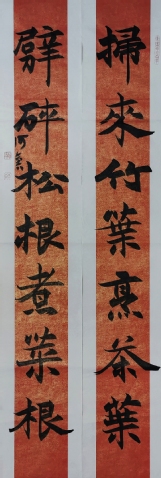 掃來竹葉烹茶葉
劈碎松根煮菜根